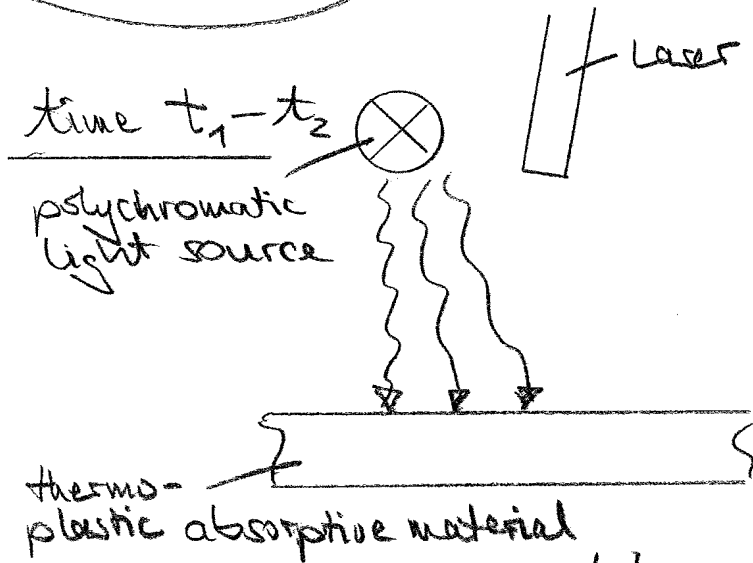 Laser
time t₁-t₂
polychromatic
light source
thermo-
plastic absorptive material